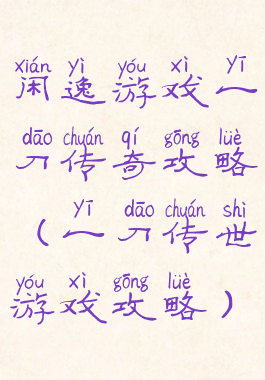 xián yì yóu xì yī
闲逸游戏一
dāo chuán qí gōng lüè
刀传奇攻略
yī dāo chuán shì
（一刀传世
yóu xì gōng lüè
游戏攻略）